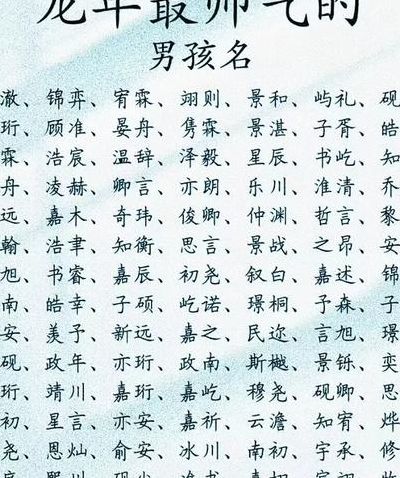 龙年最帅气的
男孩名
澈、锦弈、宥霖、翊则、景和、屿礼、砚
珩、顾准、晏舟、隽霖、景湛、子胥、皓
霖、浩宸、温辞、泽毅、星辰、书屹、知
舟、凌赫、卿言、亦朗、乐川、淮清、乔
远、嘉木、奇玮、俊卿、仲渊、哲言、黎
翰、浩聿、知衡、思言、景战、之昂、安
旭、书睿、嘉辰、初尧、叙白、嘉述、锦
南、皓幸、子硕、屹诺、璟桐、予森、子
安、羡予、新远、嘉之、民迩、言旭、璟
砚、政年、亦珩、政南、斯樾、景铄、奕
珩、靖川、嘉珩、嘉屹、穆尧、砚卿、思
初、星言、亦安、嘉祈、云澹、知宥、烨
尧、恩灿、俞安、冰川、南初、宇承、修